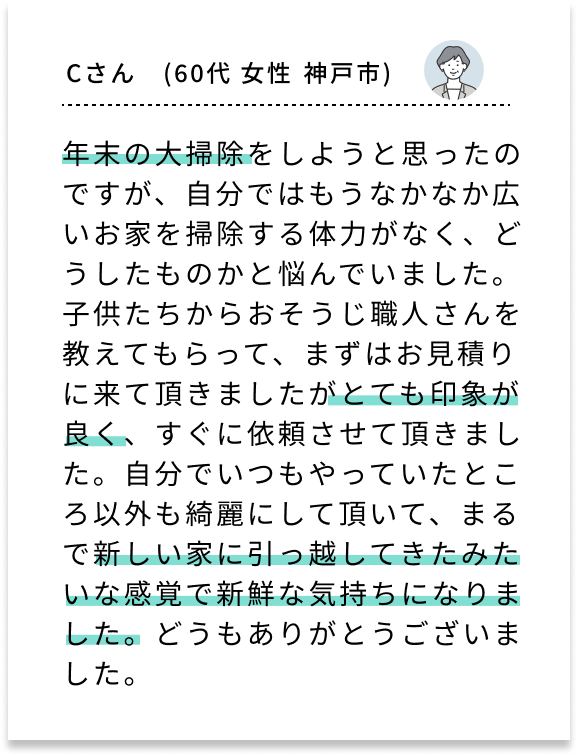 Cさん　(60代 女性 神戸市)
年末の大掃除をしようと思ったの
ですが、自分ではもうなかなか広
いお家を掃除する体力がなく、ど
うしたものかと悩んでいました。
子供たちからおそうじ職人さんを
教えてもらって、まずはお見積り
に来て頂きましたがとても印象が
良く、すぐに依頼させて頂きまし
た。自分でいつもやっていたとこ
ろ以外も綺麗にして頂いて、まる
で新しい家に引っ越してきたみた
いな感覚で新鮮な気持ちになりま
した。どうもありがとうございま
した。